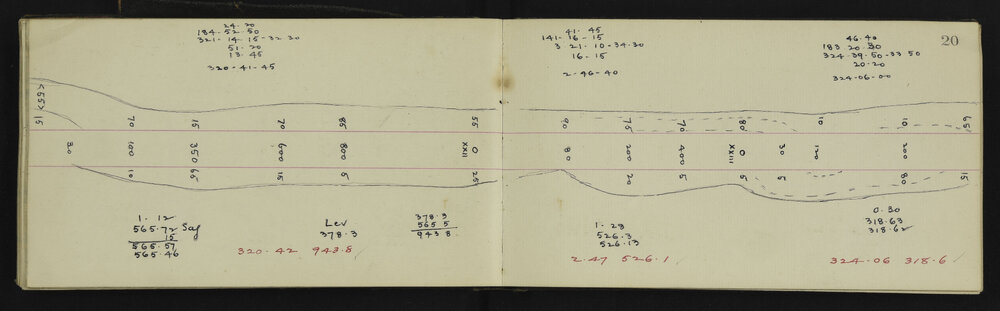 24. 20
184. 52. 50
321. 14. 15 - 32. 30
51. 20
13. 45
320 - 41 - 45
41. 45
141 - 16 - 15
3. 21. 10 - 34. 30
16 - 15
2 - 46 - 40
46. 40
183 20. 30
324. 39. 50 - 33 50
20. 20
324. 06. 00
20
<55> 15
70
15
70
85
55
90
75
70
80
10
10
65
30
100
350
600
800
0 XXII
80
200
400
0 XXIII
30
120
200
10
65
15
5
25
20
5
5
5
80
15
1 - 12
565. 72 Sag
15
565. 57
565. 46
320. 42 943. 8 /
Lev
378. 3
378. 3
565 5
943 8.
1 - 23
526. 3
526. 13
2. 47 526. 1 /
0. 30
318. 63
318. 62
324. 06 318. 6 /